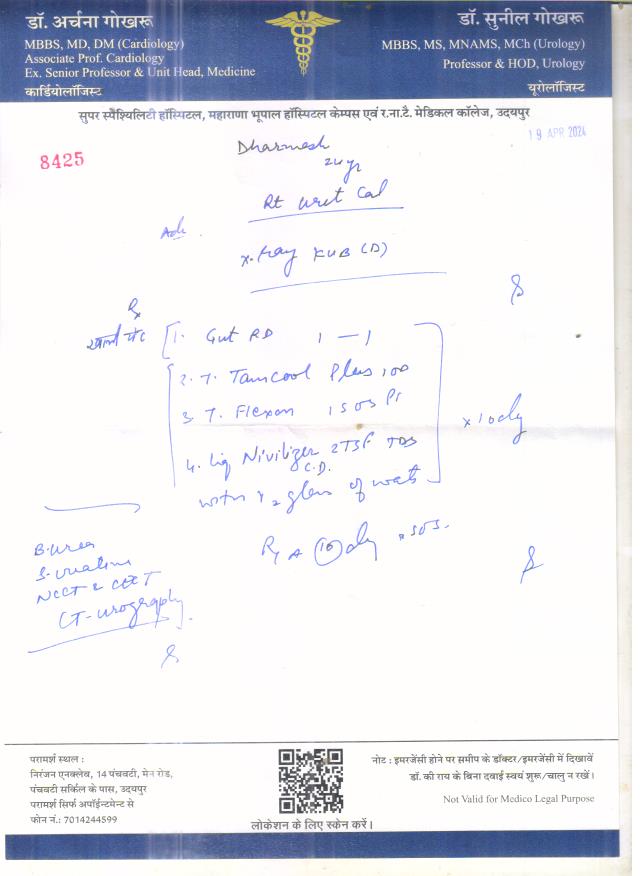 डॉ. अर्चना गोखरू
MBBS, MD, DM (Cardiology)
Associate Prof. Cardiology
Ex. Senior Professor & Unit Head, Medicine
कार्डियोलॉजिस्ट
डॉ. सुनील गोखरू
MBBS, MS, MNAMS, MCh (Urology)
Professor & HOD, Urology
यूरोलॉजिस्ट
सुपर स्पैश्यिलिटी हॉस्पिटल, महाराणा भूपाल हॉस्पिटल केम्पस एवं र.ना.टै. मेडिकल कॉलेज, उदयपुर
19 APR 2024
8425
Dharmesh
24 yr
Rt Uret Cal
Adv.
X-Ray KUB (D)
Rx
1. Gut RD 1 — 1
2. T. Tamcool Plus 1 OD
3. T. Flexon 1 SOS
4. Liq Nivilizer 2TSF TDS
C.D.
with 1/2 glass of water
x 10 day
R/A (10) day x SOS.
B. urea
S. creatinine
NCCT & CECT
CT-urography
परामर्श स्थल :
निरंजन एनक्लेव, 14 पंचवटी, मेन रोड,
पंचवटी सर्किल के पास, उदयपुर
परामर्श सिर्फ अपॉईन्टमेन्ट से
फोन नं.: 7014244599
लोकेशन के लिए स्केन करें।
नोट : इमरजेंसी होने पर समीप के डॉक्टर/इमरजेंसी में दिखावें
डॉ. की राय के बिना दवाई स्वयं शुरू/चालु न रखें।
Not Valid for Medico Legal Purpose